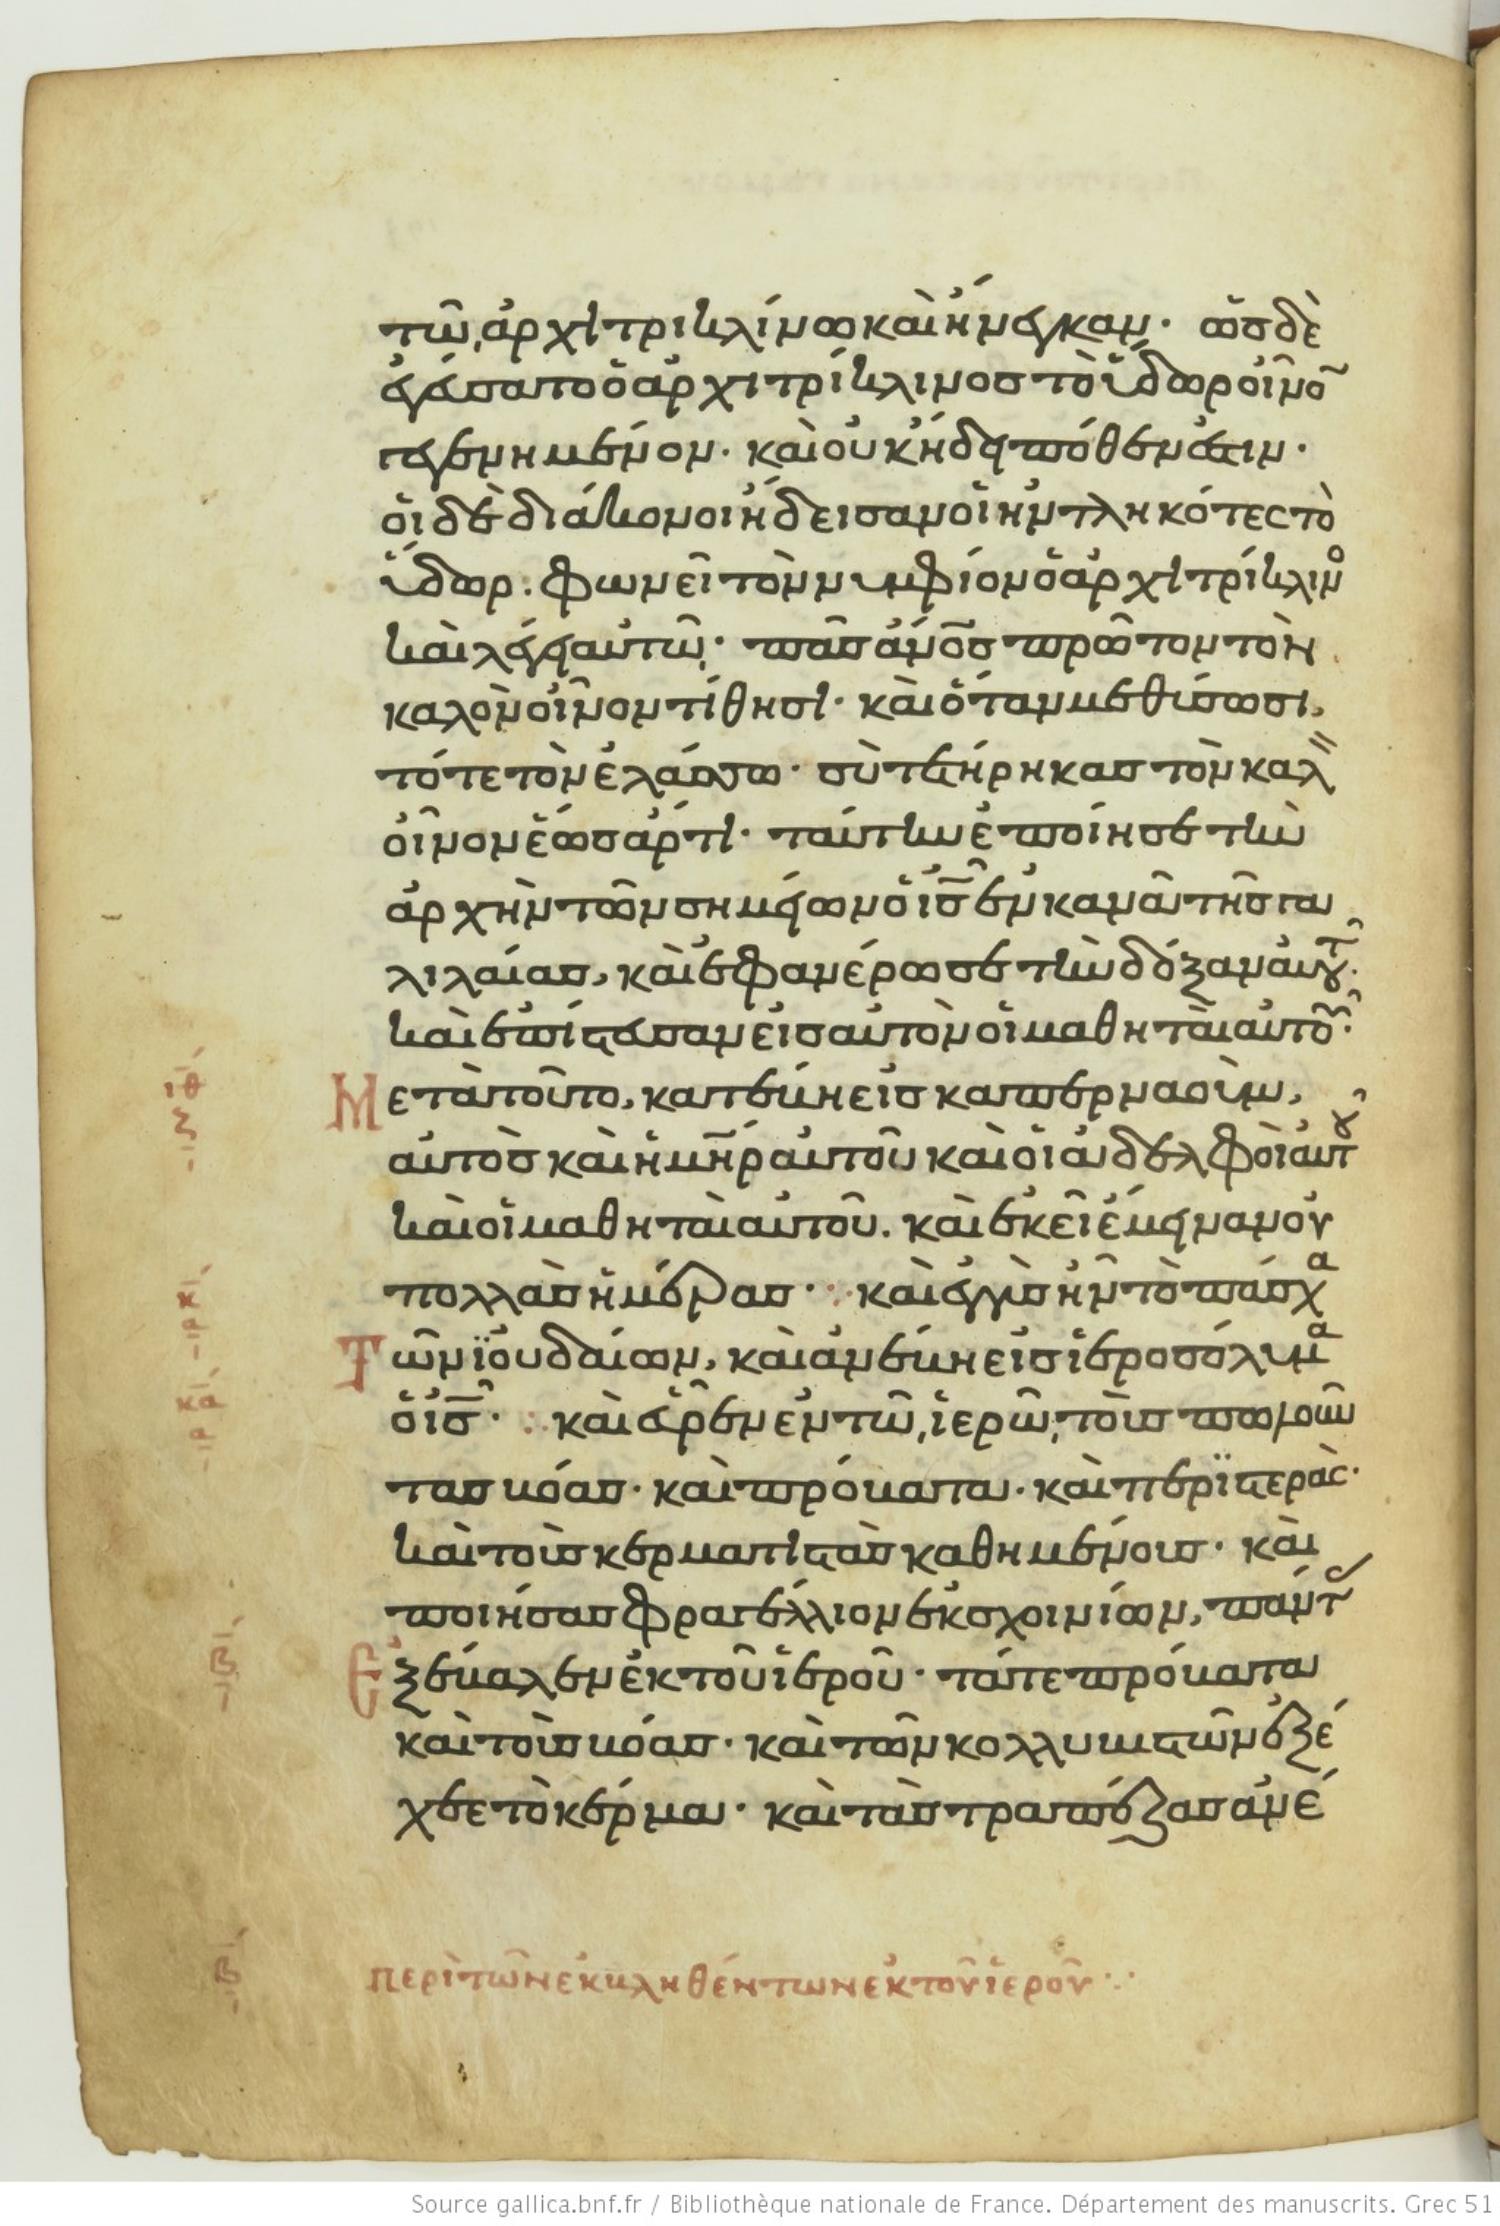 τῶ ἀρχιτρικλίνω καὶ ἤνεγκαν· ὡς δὲ
ἐγεύσατο ὁ ἀρχιτρίκλινος τὸ ὕδωρ οἶνο
γεγενημένον· καὶ οὐκ ἤδει πόθεν ἐστιν·
οἱ δὲ διάκονοι ἤδεισαν οἱ ἠντληκότες τὸ
ὕδωρ· φωνεῖ τὸν νυμφίον ὁ ἀρχιτρίκλιν
καὶ λέγει αὐτῶ· πᾶς ἄνος πρῶτον τὸν
καλὸν οἶνον τίθησι· καὶ ὅταν μεθυσθῶσι,
τότε τὸν ἐλάσσω· σὺ τετήρηκας τὸν καλ
οἶνον ἕως ἄρτι· ταύτην ἐποίησε τὴν
ἀρχὴν τῶν σημείων ὁ ις ἐν κανᾶ τῆς γα
λιλαίας, καὶ ἐφανέρωσε τὴν δόξαν αὐτοῦ·
καὶ ἐπίστευσαν εἰς αὐτὸν οἱ μαθηταὶ αὐτοῦ·
ιθ
Μετὰ τοῦτο, κατέβη εἰς καπερναούμ,
αὐτὸς καὶ ἡ μηρ αὐτοῦ καὶ οἱ ἀδελφοὶ αὐτου
καὶ οἱ μαθηταὶ αὐτοῦ. καὶ ἐκεῖ ἔμειναν οὐ
πολλὰς ἡμέρας· καὶ ἐγγὺς ἦν τὸ πάσχα
Τῶν ἰουδαίων, καὶ ἀνέβη εἰς ἱεροσόλυμα
ὁ ις· καὶ εὗρεν ἐν τῶ ἱερῶ, τοὺς πωλοῦν
τας βόας· καὶ πρόβατα· καὶ περιστεράς·
καὶ τοὺς κερματιστὰς καθημένους· καὶ
ποιήσας φραγέλλιον ἐκ σχοινίων, πάντ
β
Ἐξέβαλεν ἐκ τοῦ ἱεροῦ· τά τε πρόβατα
καὶ τοὺς βόας· καὶ τῶν κολλυβιστῶν ἐξέ
χεε τὸ κέρμα· καὶ τὰς τραπέζας ἀνέ
β
περὶ τῶν ἐκβληθέντων ἐκ τοῦ ἱεροῦ
Source gallica.bnf.fr / Bibliothèque nationale de France. Département des manuscrits. Grec 51